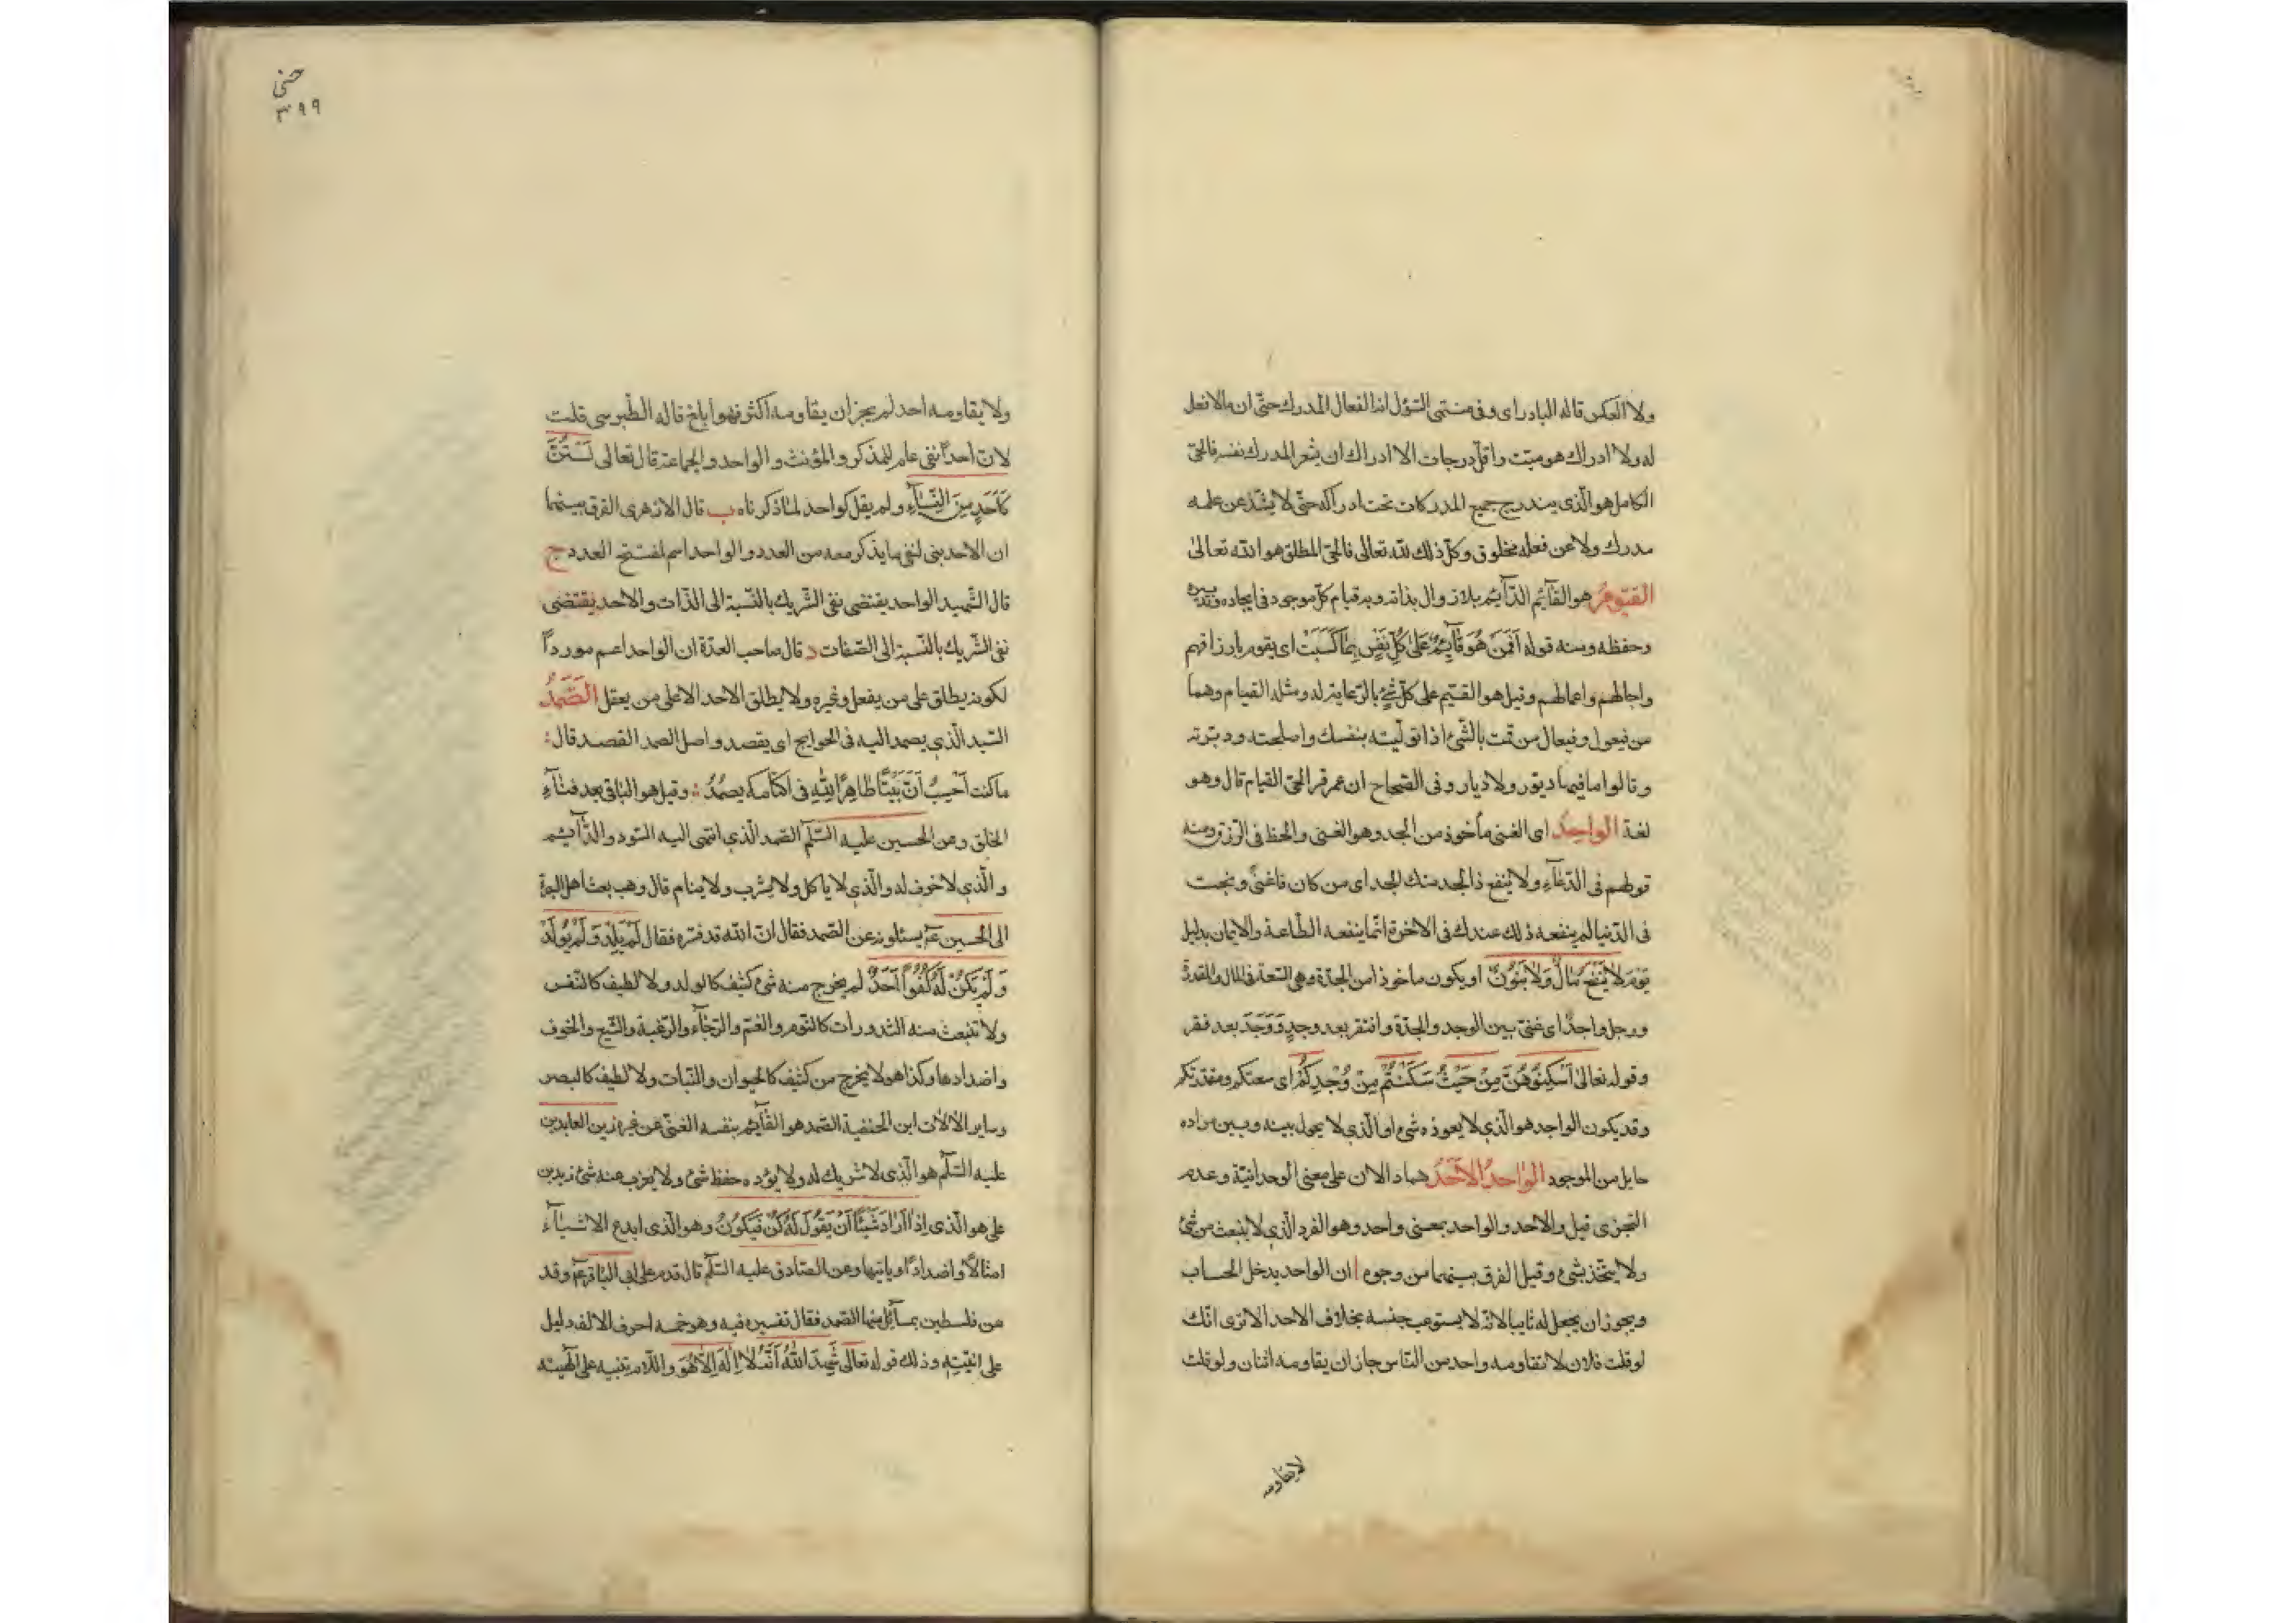 ولا العكس قاله البادراى وفى منتهى السؤل انه الفعال المدرك حتى ان ما لا فعل
له ولا ادراك هو ميت واقل درجات الادراك ان يشعر المدرك نفسه فالحى
الكامل هو الذى يندرج جميع المدركات تحت ادراكه حتى لا يشذ عن علمه
مدرك ولا عن فعله مخلوق وكل ذلك لله تعالى فالحى المطلق هو الله تعالى
القيوم هو القآئم الدآئم بلا زوال بذاته وبه قيام كل موجود فى ايجاده وتدبيره
وحفظه ومنه قوله اَفَمَنْ هُوَ قآئِمٌ عَلى كُلِّ نَفْسٍ بِما كَسَبَتْ اى يقوم بارزاقهم
واجالهم واعمالهم وقيل هو القيم على كل شئ بالرعاية له ومثله القيام وهما
من فيعول وفيعال من قمت بالشئ اذا توليته بنفسك واصلحته ودبرته
وقالوا ما فيها ديور ولا ديار وفى الصحاح ان عمر قرا الحى القيام قال وهو
لغة الواجد اى الغنى مأخوذ من الجد وهو الغنى والحظ فى الرزق ومنه
قولهم فى الدعآء ولا ينفع ذا الجد منك الجد اى من كان ذا غنى وبخت
فى الدنيا لم ينفعه ذلك عندك فى الاخرة انما ينفعه الطاعة والايمان بدليل
يَوْمَ لا يَنْفَعُ مالٌ وَلا بَنُونٌ او يكون ماخوذا من الجدة وهى السعة فى المال والمقدرة
ورجل واجد اى غنى بين الوجد والجدة وافتقر بعد وجدٍ وَوَجَدَ بعد فقر
وقوله تعالى اَسْكِنُوهُنَّ مِنْ حَيْثُ سَكَنْتُمْ مِنْ وُجْدِكُمْ اى سعتكم ومقدرتكم
وقد يكون الواجد هو الذى لا يعوزه شئ او الذى لا يحول بينه وبين مراده
حايل من الموجود الواحد الاحد هما دالان على معنى الوحدانية وعدم
التجزى قيل والاحد والواحد بمعنى واحد وهو الفرد الذى لا ينبعث من شئ
ولا يتحد بشئ وقيل الفرق بينهما من وجوه ا ان الواحد يدخل الحساب
ويجوز ان يجعل له ثانيا لانه لا يستوعب جنسه بخلاف الاحد الا ترى انك
لو قلت فلان لا تقاومه واحد من الناس جاز ان يقاومه اثنان ولو قلت
لا يقاومه
حنى
٣٩٩
ولا يقاومه احد لم يجز ان يقاومه اكثر فهو ابلغ قاله الطبرسى قلت
لان احدا نفى عام للمذكر والمؤنث والواحد والجماعة قال تعالى لَسْتُنَّ
كَاَحَدٍ مِنَ النِّسآءِ ولم يقل كواحد لما ذكرناه ب قال الازهرى الفرق بينهما
ان الاحد بنى لنفى ما يذكر معه من العدد والواحد اسم لمفتتح العدد ج
قال الشهيد الواحد يقتضى نفى الشريك بالنسبة الى الذات والاحد يقتضى
نفى الشريك بالنسبة الى الصفات د قال صاحب العدة ان الواحد اعم موردا
لكونه يطلق على من يعقل وغيره ولا يطلق الاحد الا على من يعقل الصَّمَدُ
السيد الذى يصمد اليه فى الحوايج اى يقصد واصل الصمد القصد قال
ما كنت اَحْسِبُ اَنَّ بَيْتًا طاهِرًا لِلّهِ فى اكناف مكة يصمُدُ وقيل هو الباقى بعد فنآء
الخلق وعن الحسين عليه السلم الصمد الذى انتهى اليه السودد والدآئم
والذى لا جوف له والذى لا ياكل ولا يشرب ولا ينام قال وهب بعث اهل البصرة
الى الحسين ع يسئلونه عن الصمد فقال ان الله قد فسره فقال لَمْ يَلِدْ وَلَمْ يُولَدْ
وَلَمْ يَكُنْ لَهُ كُفُوًا اَحَدٌ لم يخرج منه شئ كثيف كالولد ولا لطيف كالنفس
ولا تنبعث منه البدورات كالنوم والغم والرجآء والرغبة والشبع والخوف
واضدادها وكذا هو لا يخرج من كثيف كالحيوان والنبات ولا لطيف كالبصر
وساير الالات ابن الحنفية الصمد هو القآئم بنفسه الغنى عن غيره زين العابدين
عليه السلم هو الذى لا شريك له ولا يؤده حفظ شئ ولا يعزب عنه شئ زيد بن
على هو الذى اِذا اَرادَ شَيْئًا اَنْ يَقُولَ لَهُ كُنْ فَيَكُونُ وهو الذى ابدع الاشيآء
امثالا واضدادا وباينها وعن الصادق عليه السلم قال قدم على ابى الباقر ع وفد
من فلسطين بمسآئل منها الصمد فقال تفسيره فيه وهو خمسة احرف الالف دليل
على انيته وذلك قوله تعالى شَهِدَ اللهُ اَنَّهُ لا اِلهَ اِلّا هُوَ واللام تنبيه على الهيته